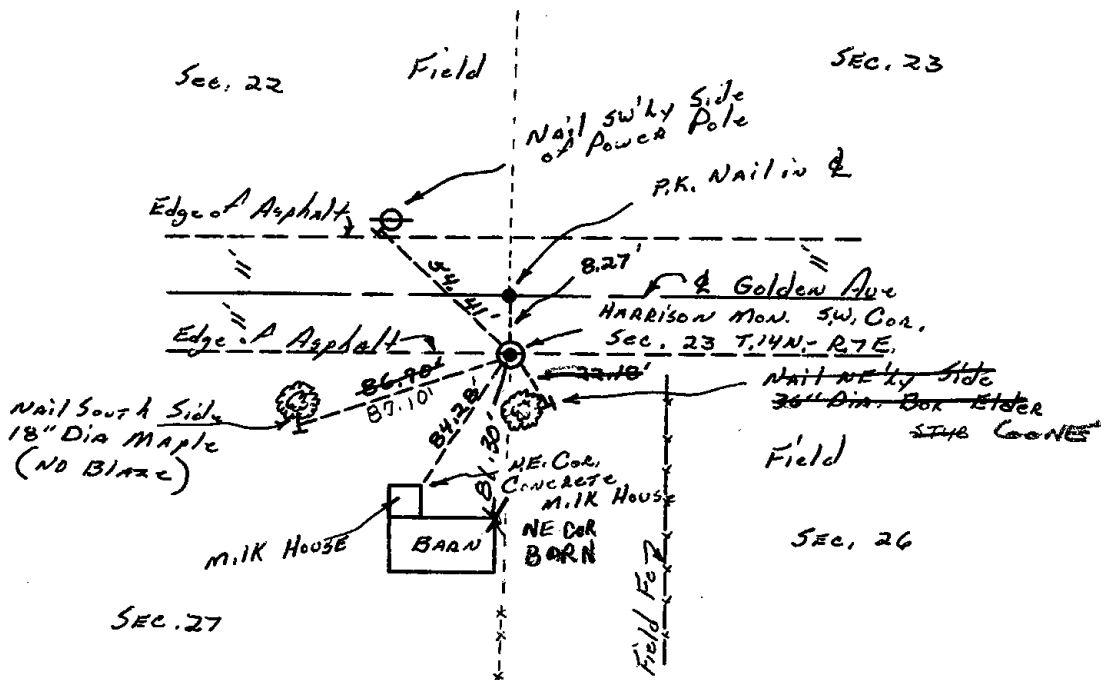 Sec. 22
Field
SEC. 23
Nail SW'ly Side
of Power Pole
P.K. Nail in ℄
Edge of Asphalt
54.41'
8.27'
℄ Golden Ave
HARRISON MON. S.W. COR.
Sec. 23 T.14N.- R.7E.
Edge of Asphalt
86.90'
87.10'
22.18'
Nail NE'ly Side
36" Dia. Box Elder
STUB GONE
Nail South Side
18" Dia Maple
(NO Blaze)
84.28'
81.30'
N.E. Cor.
CONCRETE
Milk House
NE COR
BARN
Milk House
BARN
Field
SEC. 26
Field Fc
SEC. 27